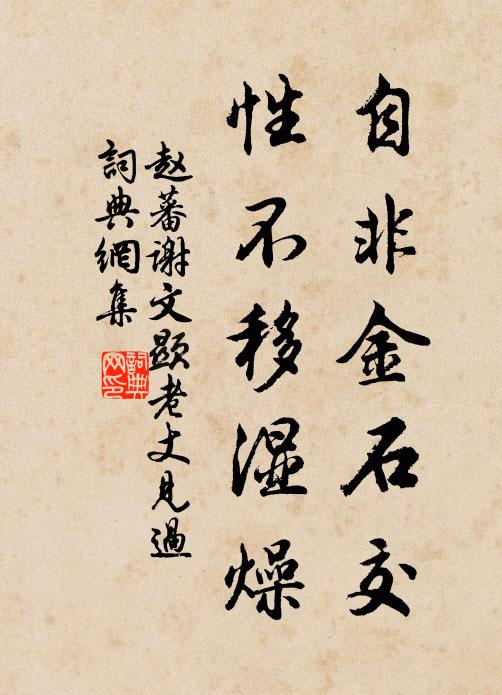 自非金石交
性不移湿燥
赵蕃谢文顕老丈見過
詞典網集
詞典网印